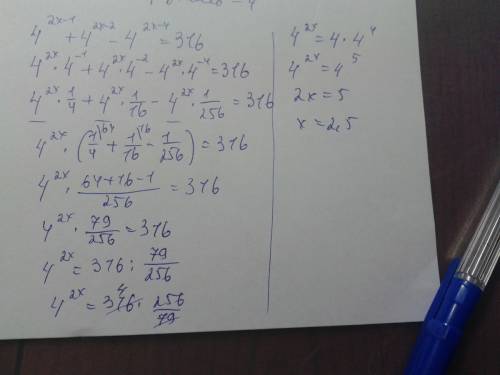 4^{2x-1} + 4^{2x-2} - 4^{2x-4} = 316
4^{2x} · 4^{-1} + 4^{2x} · 4^{-2} - 4^{2x} · 4^{-4} = 316
4^{2x} · 1/4 + 4^{2x} · 1/16 - 4^{2x} · 1/256 = 316
4^{2x} · (1/4^{\64} + 1/16^{\16} - 1/256) = 316
4^{2x} · (64+16-1)/256 = 316
4^{2x} · 79/256 = 316
4^{2x} = 316 : 79/256
4^{2x} = 316^{4} · 256/79
4^{2x} = 4 · 4^{4}
4^{2x} = 4^{5}
2x = 5
x = 2,5